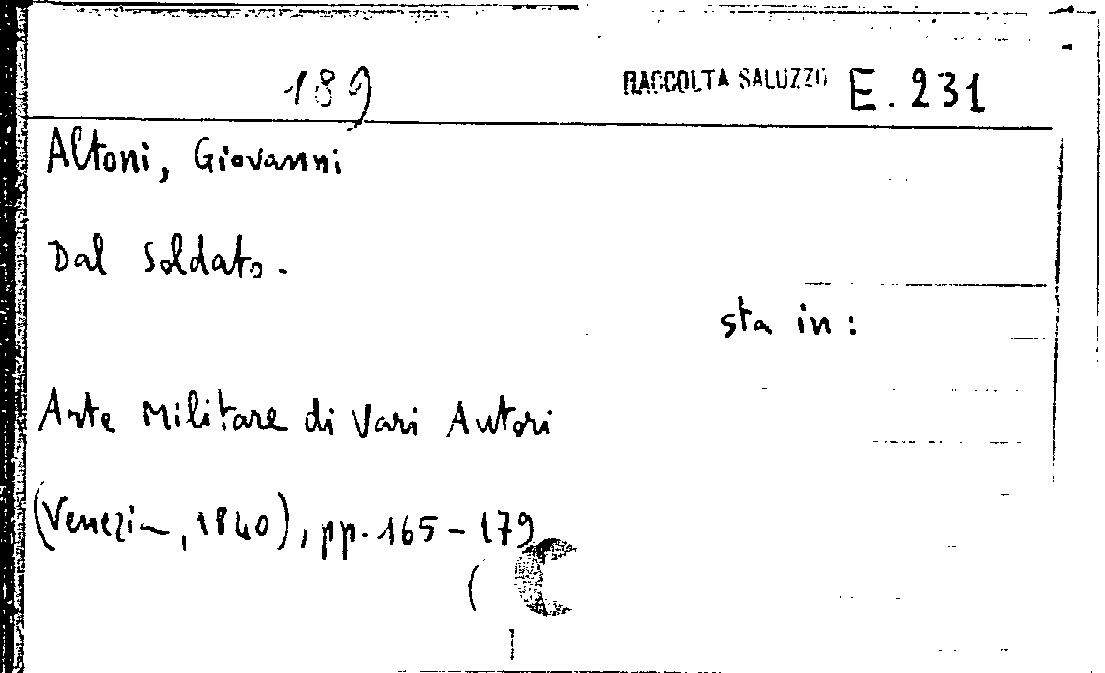 189 RACCOLTA SALUZZO E. 231
Altoni, Giovanni
Dal Soldato.
sta in:
Arte Militare di Vari Autori
(Venezia, 1840), pp. 165-179